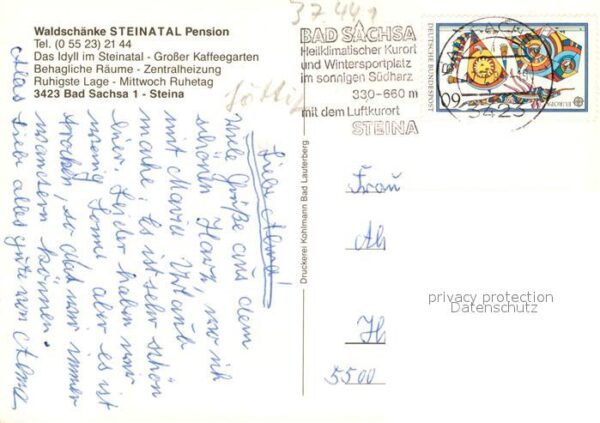 Waldschänke STEINATAL Pension
Tel. (0 55 23) 21 44
Das Idyll im Steinatal - Großer Kaffeegarten
Behagliche Räume - Zentralheizung
Ruhigste Lage - Mittwoch Ruhetag
3423 Bad Sachsa 1 - Steina
37.441
BAD SACHSA
Heilklimatischer Kurort
und Wintersportplatz
im sonnigen Südharz
330-660 m
mit dem Luftkurort
STEINA
3423
DEUTSCHE BUNDESPOST
60
EUROPA
Liebe Alma!
Viele Grüße aus dem
schönen Harz, wo ich
mit Maria Urlaub
mache. Es ist sehr schön
hier. Leider haben wir
wenig Sonne aber es ist
trocken, so das wir immer
wandern können.
Alles Liebe alles gute von Alma
Druckerei Kohlmann Bad Lauterberg
Frau
Al
H
5500
privacy protection
Datenschutz